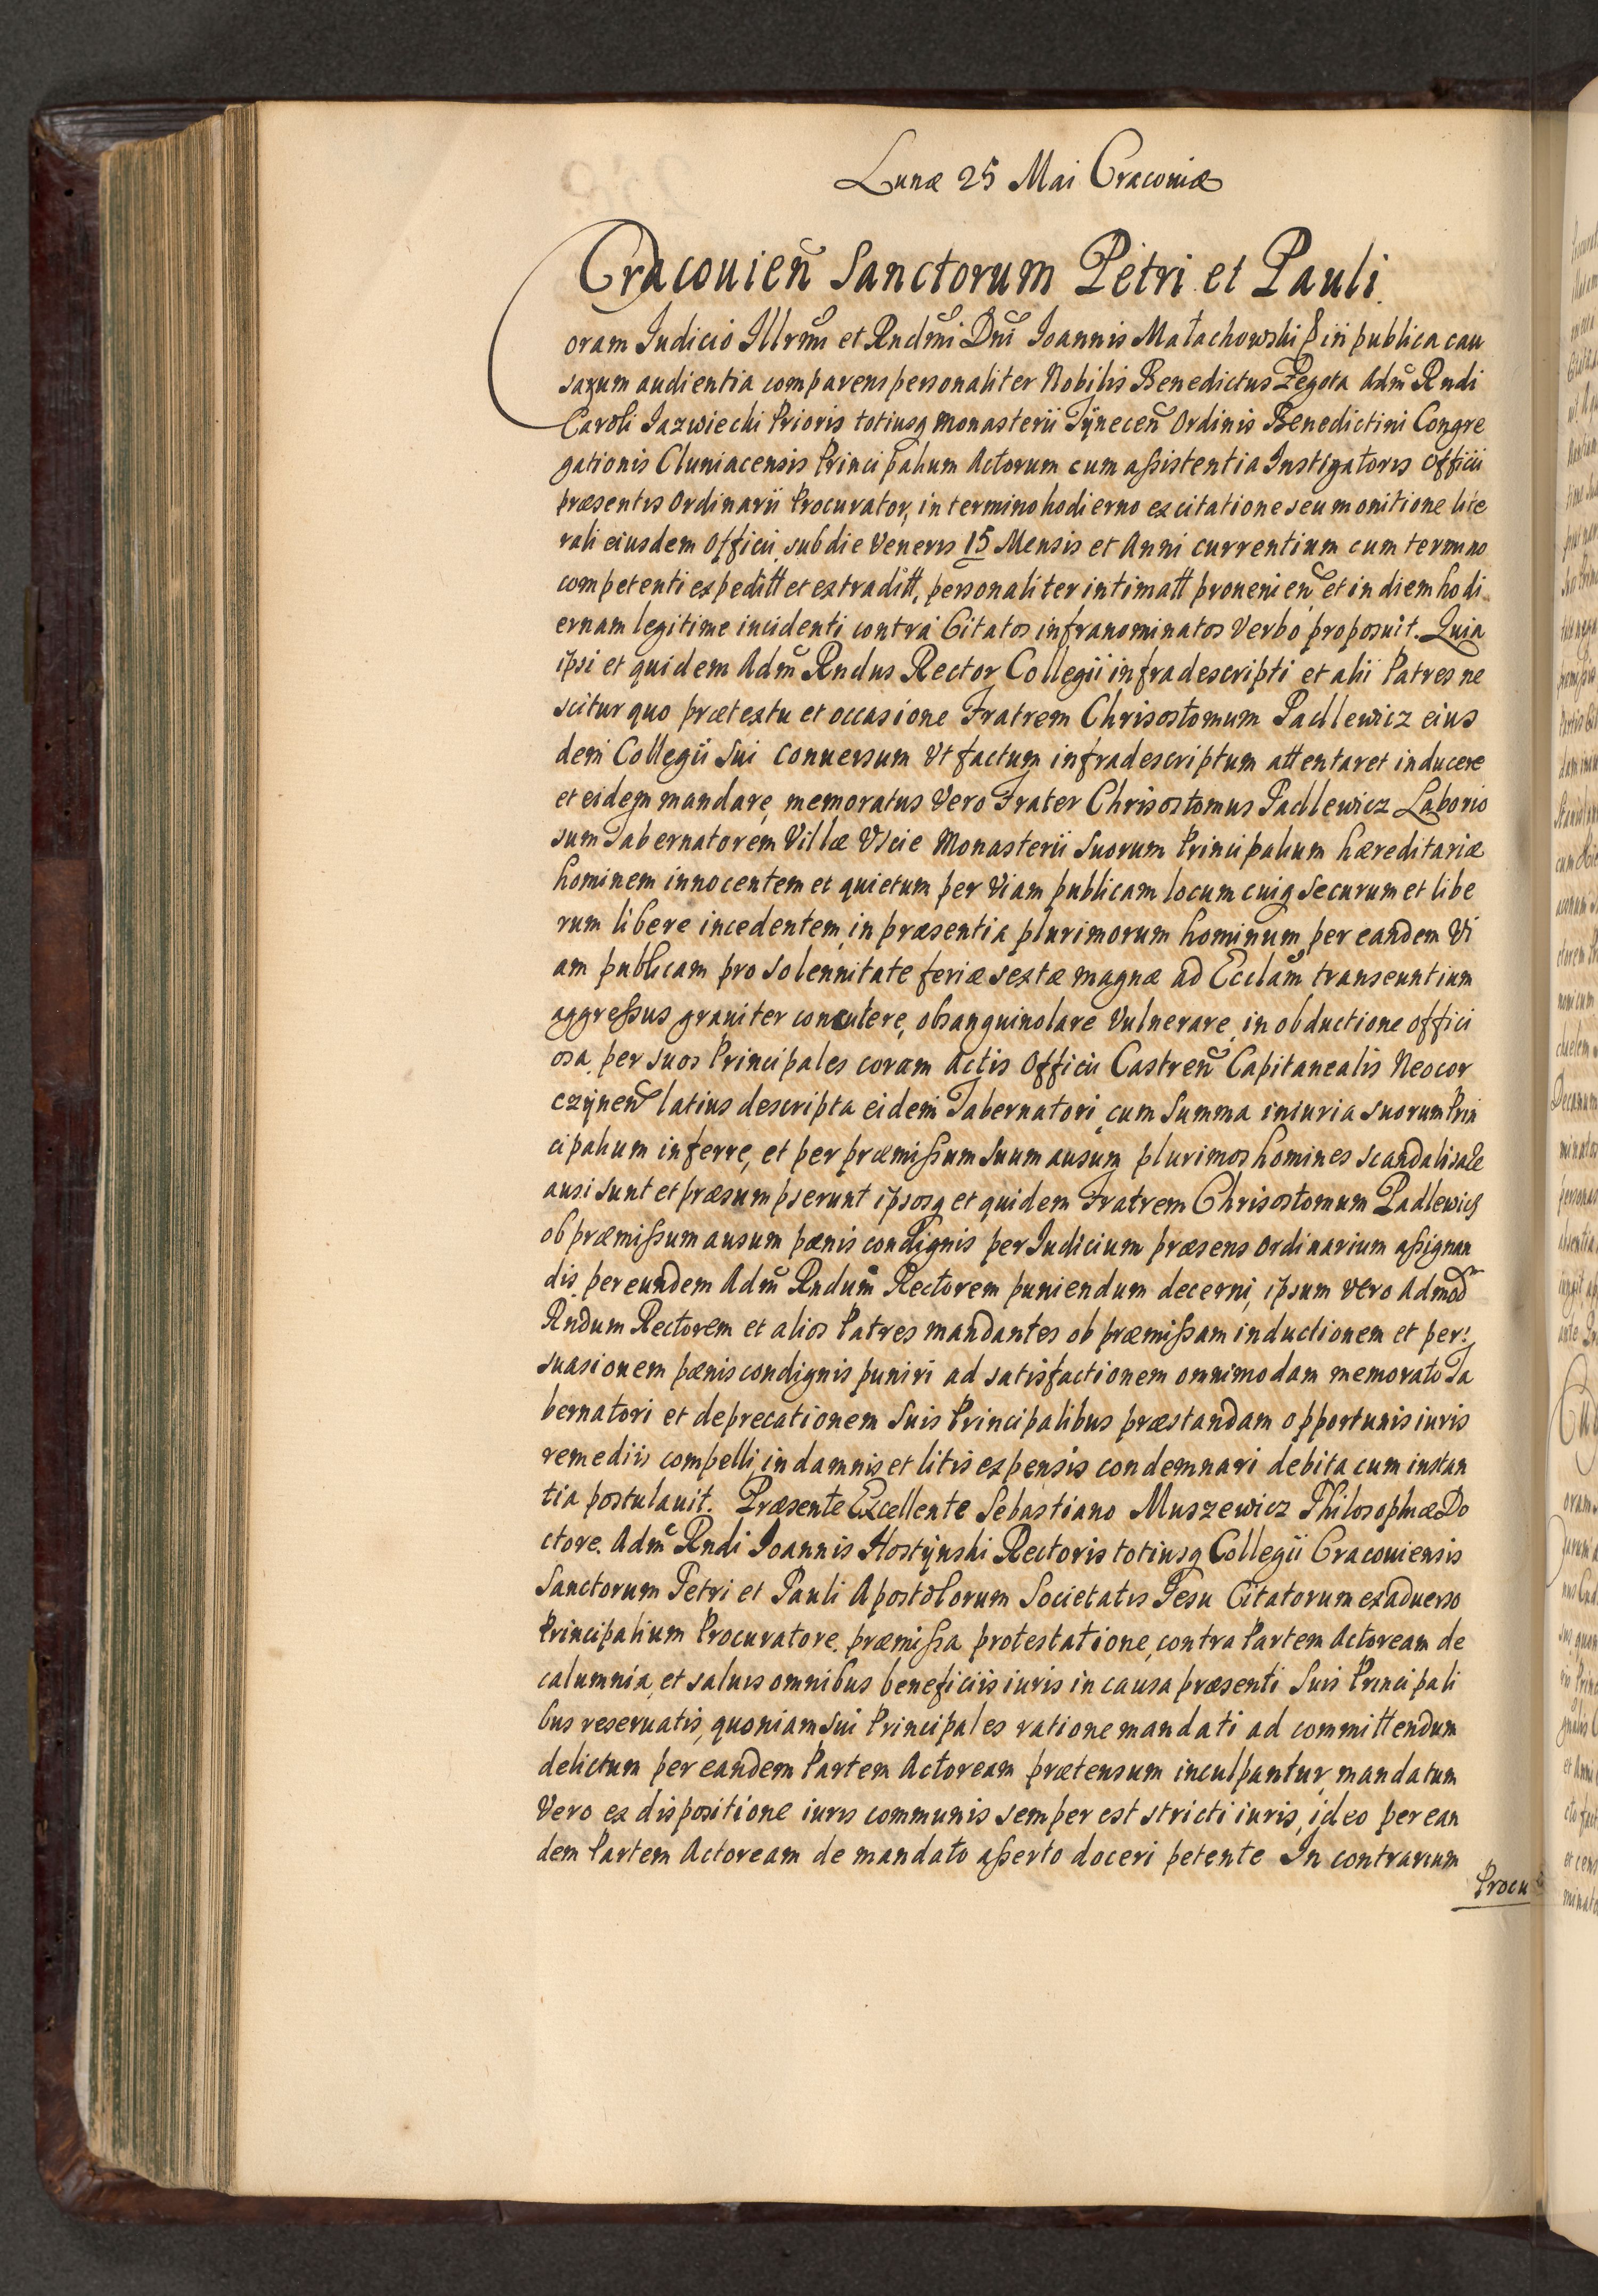 Lunæ 25 Mai Cracoviæ
Cracouien̄ Sanctorum Petri et Pauli
oram Iudicio Illrmi et Rndmi Dni Ioannis Małachowski in publica cau
sarum audientia comparens personaliter Nobilis Benedictus Zegota Adm̄ Rndi
Caroli Jazwiecki Prioris totiusq Monasterii Tÿnecen̄ Ordinis Benedictini Congre
gationis Cluniacensis Principalium Actorum cum aßistentia Instigatoris Officii
præsentis Ordinarii Procurator, in termino hodierno ex citatione seu monitione lite
rali eiusdem Officii sub die Veneris 15 Mensis et Anni currentium cum termino
competenti expeditt et extraditt, personaliter intimatt prouenien̄ et in diem hodi
ernam legitime incidenti contra Citatos infranominatos Verbo proposuit. Quia
ipsi et quidem Adm̄ Rndus Rector Collegii infradescripti et alii Patres ne
scitur quo prætextu et occasione Fratrem Chrisostomum Padlewicz eius
dem Collegii sui conuersum Vt factum infradescriptum attentaret inducere
et eidem mandare, memoratus Vero Frater Chrisostomus Padlewicz Laborio
sum Tabernatorem Villæ Vscie Monasterii Suorum Principalium hæreditariæ
hominem innocentem et quietum per Viam publicam locum cuiq securum et libe
rum libere incedentem, in præsentia plurimorum hominum per eandem Vi
am publicam pro solennitate feriæ sextæ magnæ ad Ecclam̄ transeuntium
aggreßus grauiter concutere, obsanguinolare Vulnerare in obductione offici
osa per suos Principales coram actis Officii Castren̄ Capitanealis Neocor
czÿnen̄ latius descripta eidem Tabernatori cum summa iniuria suorum Prin
cipalium inferre, et per præmißum suum ausum plurimos homines scandalisare
ausi sunt et præsumpserunt ipsosq et quidem Fratrem Chrisostomum Padlewicz
ob præmißum ausum pænis condignis per Iudicium præsens Ordinarium aßignan
dis per eundem Adm̄ Rndum Rectorem puniendum decerni, ipsum Vero Admod
Rndum Rectorem et alios Patres mandantes ob præmißam inductionem et per
suasionem pænis condignis puniri ad satisfactionem omnimodam memorato Ta
bernatori et deprecationem suis Principalibus præstandam opportunis iuris
remediis compelli, in damnis et litis expensis condemnari debita cum instan
tia postulauit. Præsente Excellente Sebastiano Muszewicz Philosophiæ Do
ctore. Adm̄ Rndi Ioannis Hostÿnski Rectoris totiusq Collegii Cracouiensis
Sanctorum Petri et Pauli Apostolorum Societatis Jesu Citatorum ex aduerso
Principalium Procuratore. præmißa protestatione, contra Partem Actoream de
calumnia, et saluis omnibus beneficiis iuris in causa præsenti suis Principali
bus reseruatis, quoniam sui Principales ratione mandati ad committendum
delictum per eandem Partem Actoream prætensum inculpantur, mandatum
Vero ex dispositione iuris communis semper est stricti iuris, ideo per ean
dem Partem Actoream de mandato aßerto doceri petente In contrarium
Procu